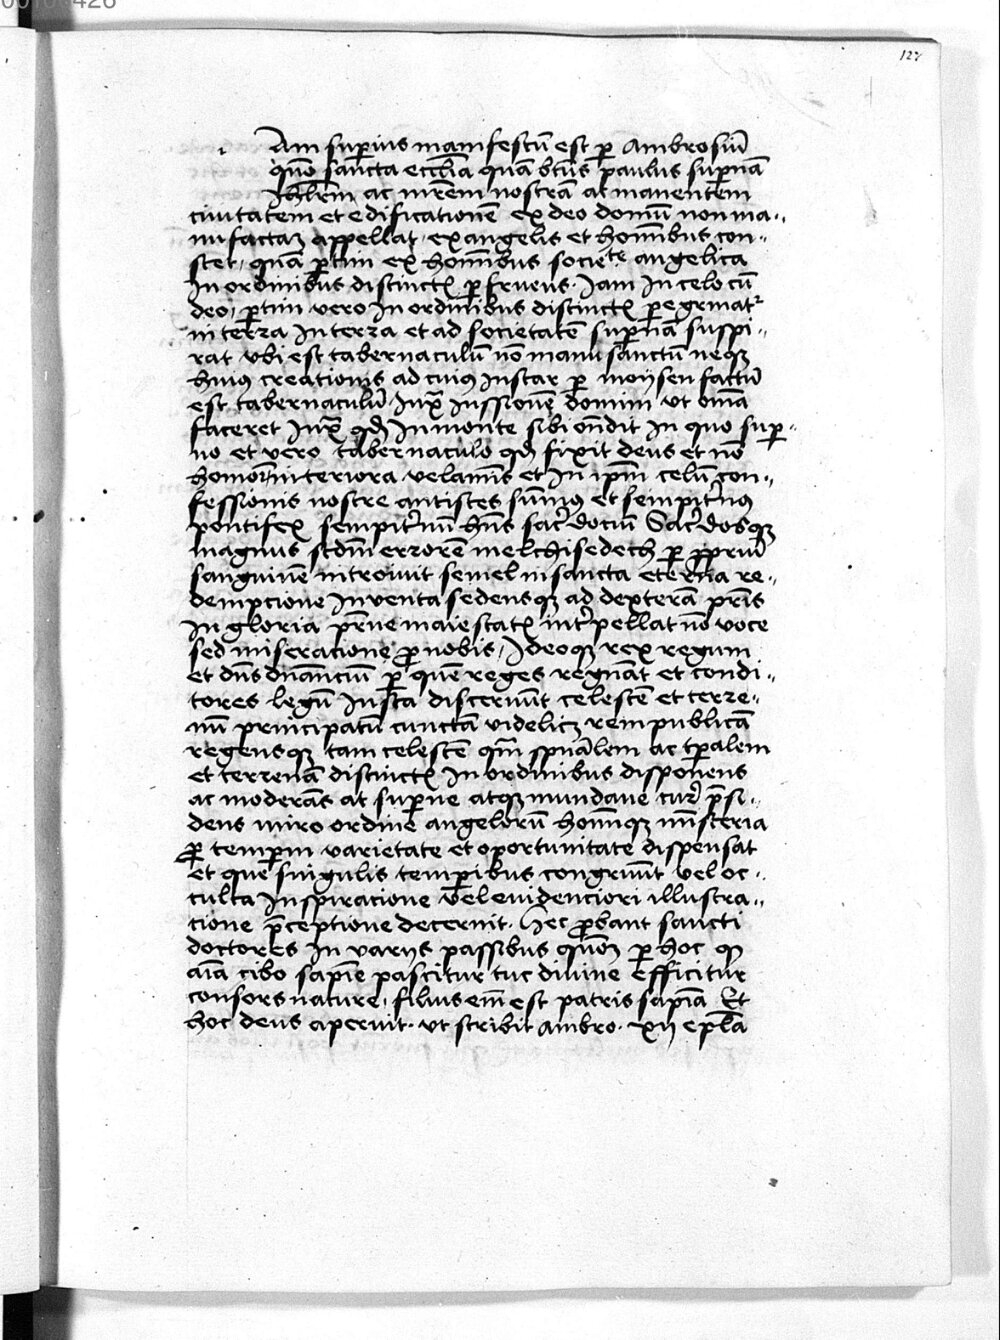 127
Am superius manifestū est ꝑ Ambrosiū
quō sancta eccl̄ia quā btūs paulus suꝑnā
Jhlrm̄ ac mr̄em nostrām at manentem
ciuitatem et edificationē ex deo domū non ma„
nu factaꝫ appellat, ex angelis et hom̄ibus con„
stet, quā ꝑtim ex hom̄ibus societe angelica
In ordinibus distinctꝭ ꝑfruens. Jam In celo cū
deo, ꝑtim vero In ordinibus distinctꝭ ꝑegrinatr
in terra In terra et ad societatē suꝑnā suspi„
rat vbi est tabernaculū nō manu sanctū neqꝫ
huiꝰ creationis ad cuiꝰ Instar ꝑ moysen factū
est tabernaculū Iuxᷓ Iussionē domini vt om̄ia
faceret Iuxᷓ qd̄ In monte sibi on̄dit In quo suꝑ„
no et vero tabernaculo qd̄ fixit deus et nō
homo interiora velaminis et In ip̄m celū con„
fessionis nostre antistes sūmꝰ et sempit̓nꝰ
pontifex sempit̓nū hn̄s sac̓dotiū Sac̓dosqꝫ
magnus scdm̄ errorē melchisedech ꝑ ꝓpriū
sanguinē introiuit semel in sancta eterna re„
dempcione Inuenta sedensqꝫ ad dexterā pr̄is
In gloria pr̄ne maiestatꝭ int̓pellat nō voce
sed miseracione ꝓ nobis, Ideoqꝫ rex regum
et dn̄s dn̄anciū ꝑ quē reges regnāt et condi„
tores legū Iusta discernūt celestē et terre„
nū principatū cunctā videlicꝫ rempublicā
regensqꝫ tam celestē qm̄ spūalem ac tꝑalem
et terrenā distinctꝭ In ordinibus disponens
ac moderās at suꝑne atqꝫ mundane cur̓ p̄si„
dens miro ordine angelorū hom̄qꝫ mīsteria
ꝓ temꝑm varietate et oportunitate dispensat
et que singulis temꝑibus congruūt vel oc„
culta Inspiracione vel euidenciori illustra„
cione p̄ceptione decernit. Hec ꝓbant sancti
doctores In varijs passibus quō ꝑ hoc qꝫ
aīa cibo sapīe pascitur tūc diuine efficitur
consors nature, filius em̄ est patris sapīa Et
hoc deus aperuit. vt scribit Ambro. xij epl̄a